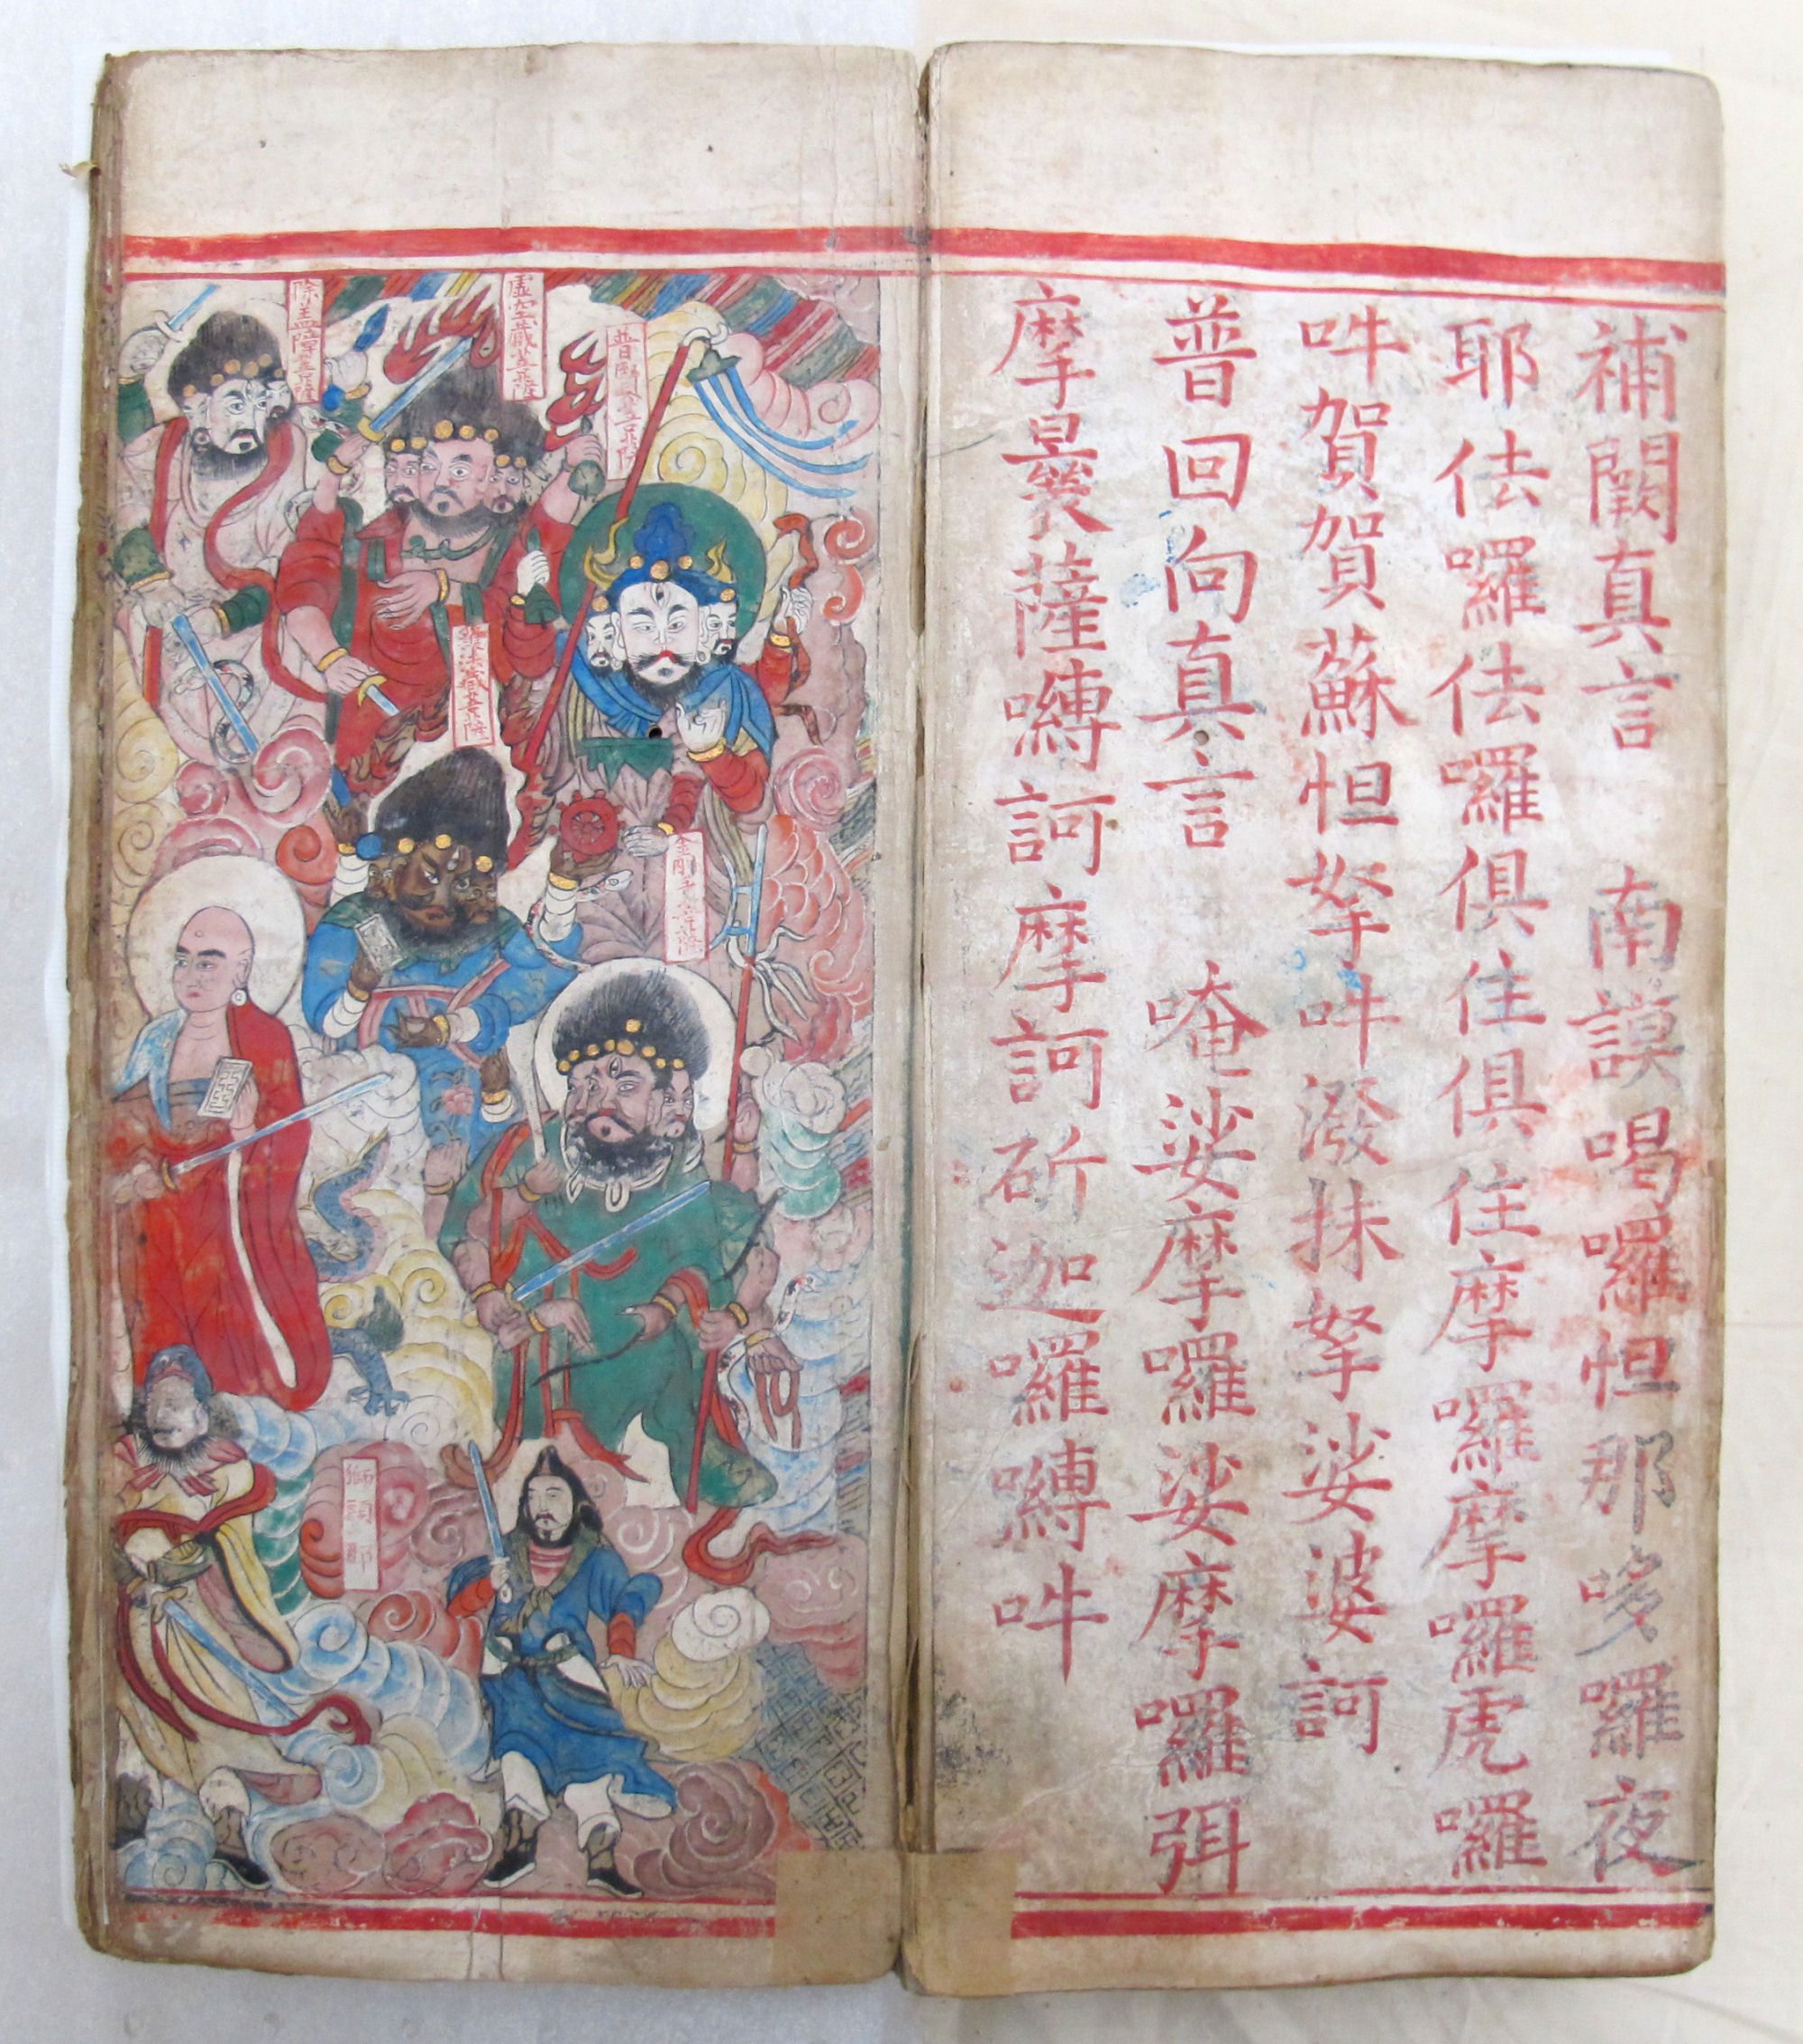 補闕真言 南謨喝囉怛那哆囉夜
耶佉囉佉囉俱住俱住摩囉摩囉虎囉
吽賀賀蘇怛拏吽潑抹拏娑婆訶
普回向真言 唵娑摩囉娑摩囉弭
摩曩薩嚩訶摩訶斫迦囉嚩吽
普賢菩薩
虛空藏菩薩
除蓋障菩薩
法藏菩薩
金剛手菩薩